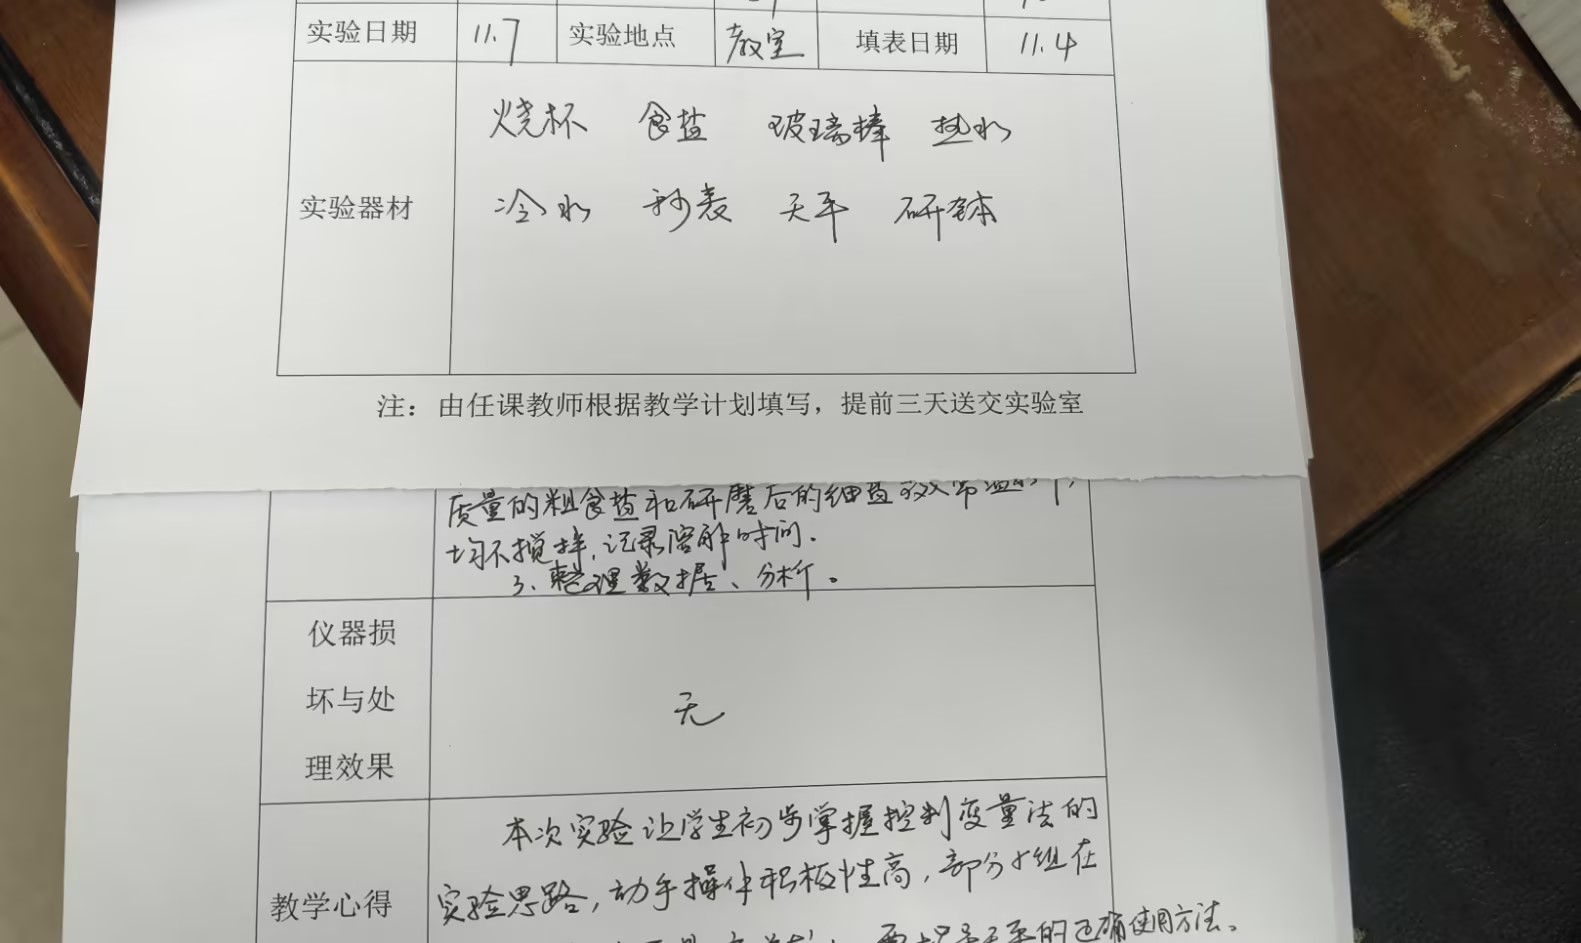 实验日期 11.7 实验地点 教室 填表日期 11.4
烧杯 食盐 玻璃棒 热水
实验器材 冷水 秒表 天平 研钵
注：由任课教师根据教学计划填写，提前三天送交实验室
质量的粗食盐和研磨后的细盐放入常温水中，
均不搅拌，记录溶解时间.
3、整理数据、分析。
仪器损
坏与处
理效果
无
本次实验让学生初步掌握控制变量法的
实验思路，动手操作积极性高，部分小组在
教学心得
天平的正确使用方法。